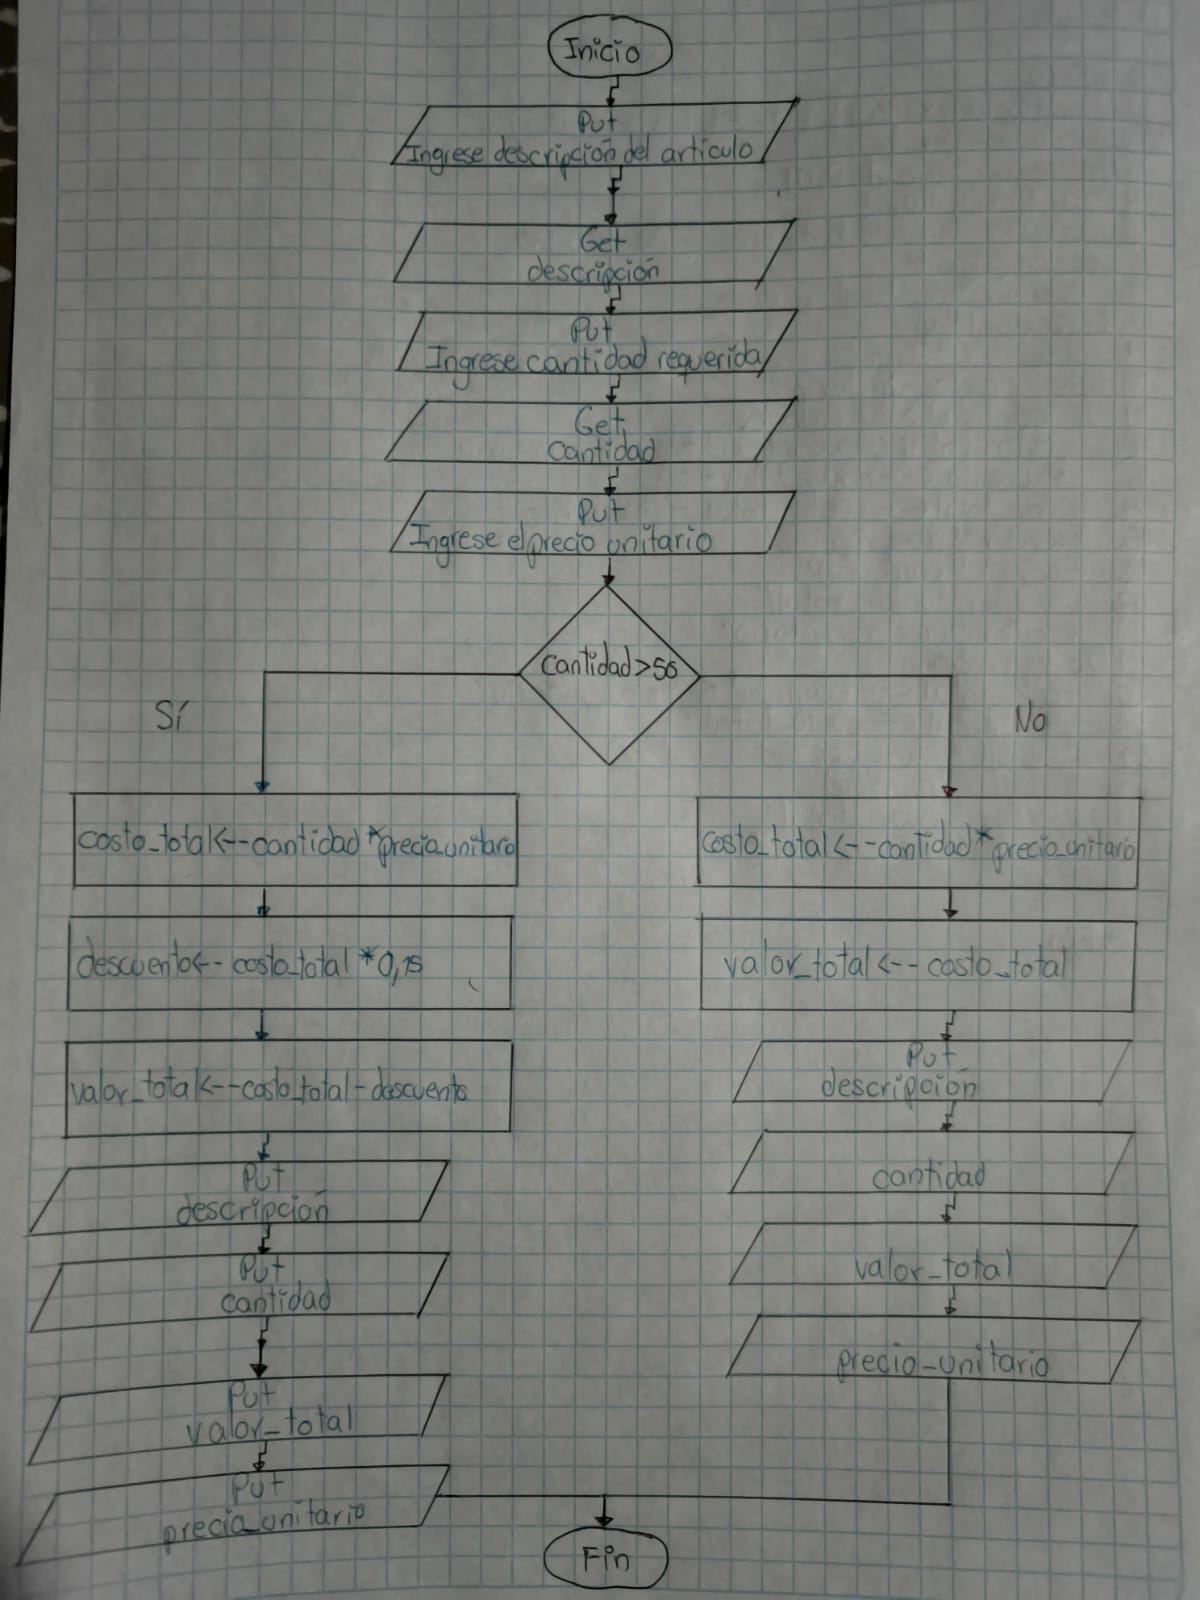 Inicio
Put
Ingrese descripción del artículo
Get
descripción
Put
Ingrese cantidad requerida
Get
cantidad
Put
Ingrese el precio unitario
cantidad>50
Sí
No
costo_total<--cantidad*precio_unitario
descuento<-- costo_total *0,15
valor_total<--costo_total-descuento
Put
descripción
Put
cantidad
Put
valor_total
Put
precio_unitario
costo_total<--cantidad*precio_unitario
valor_total<--costo_total
Put
descripción
cantidad
valor_total
precio_unitario
Fin